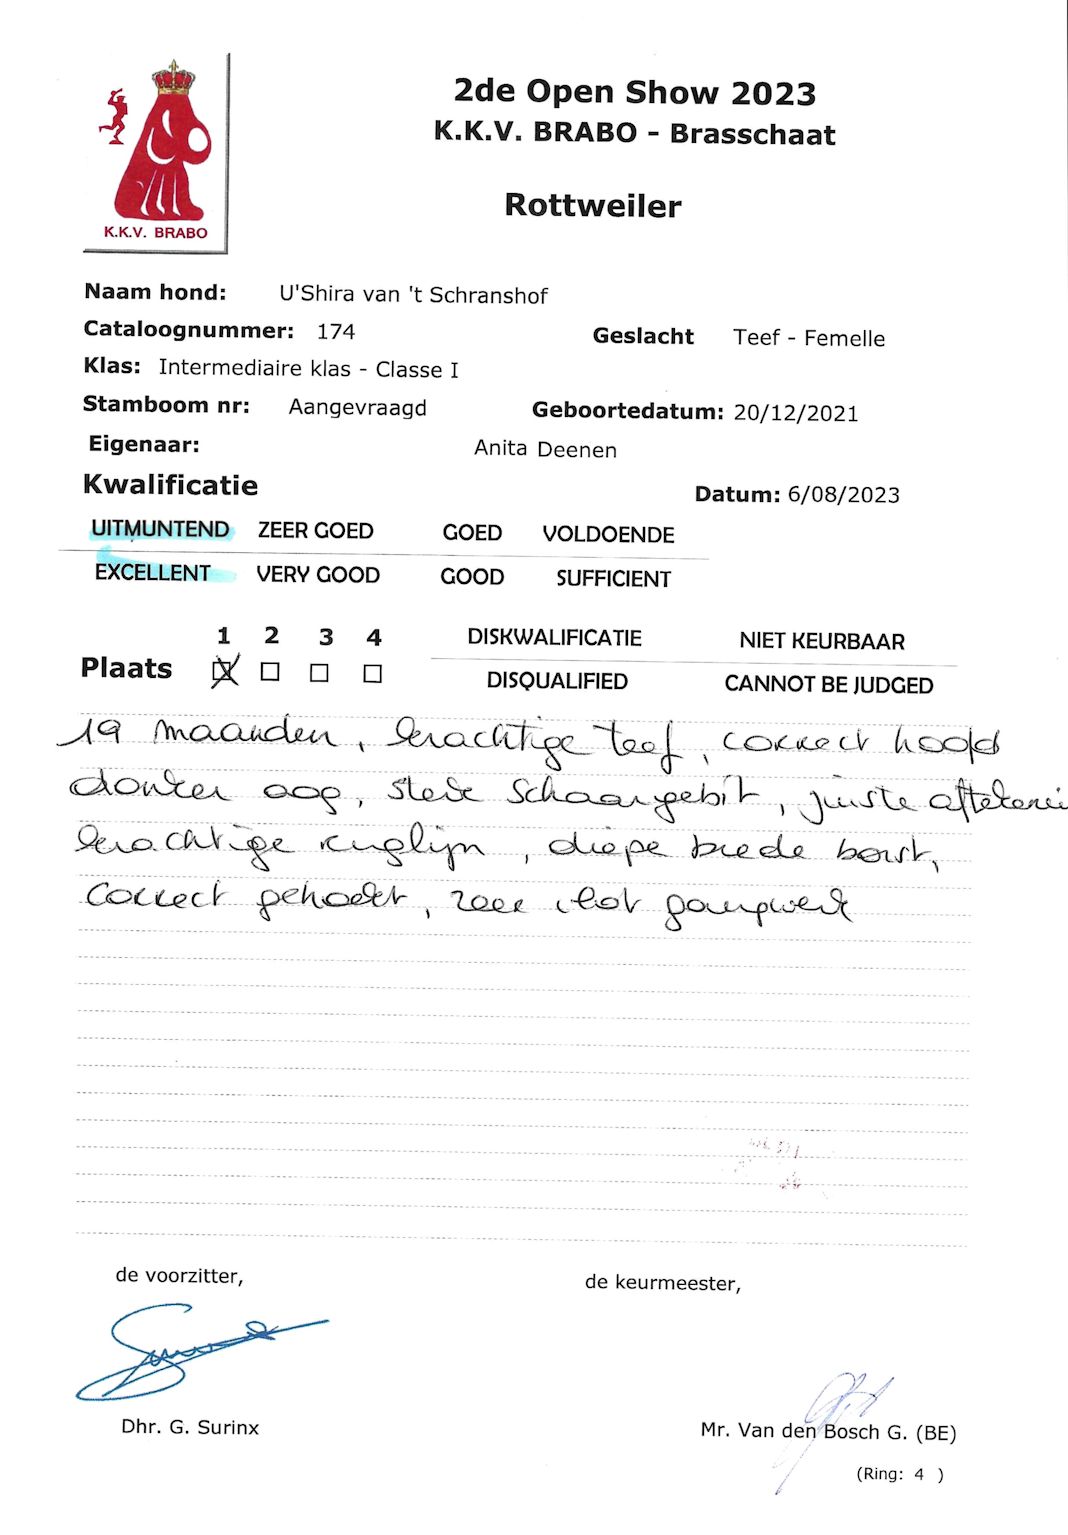 2de Open Show 2023
K.K.V. BRABO - Brasschaat
Rottweiler
K.K.V. BRABO
Naam hond: U'Shira van 't Schranshof
Cataloognummer: 174 Geslacht Teef - Femelle
Klas: Intermediaire klas - Classe I
Stamboom nr: Aangevraagd Geboortedatum: 20/12/2021
Eigenaar: Anita Deenen
Kwalificatie Datum: 6/08/2023
UITMUNTEND ZEER GOED GOED VOLDOENDE
EXCELLENT VERY GOOD GOOD SUFFICIENT
1 2 3 4 DISKWALIFICATIE NIET KEURBAAR
Plaats DISQUALIFIED CANNOT BE JUDGED
19 maanden, krachtige teef, correct hoofd
donker oog, sterk schaargebit, juiste
krachtige ruglijn, diepe brede borst,
correct gehoekt, zeer vlot gangwerk
de voorzitter, de keurmeester,
Dhr. G. Surinx Mr. Van den Bosch G. (BE)
(Ring: 4 )